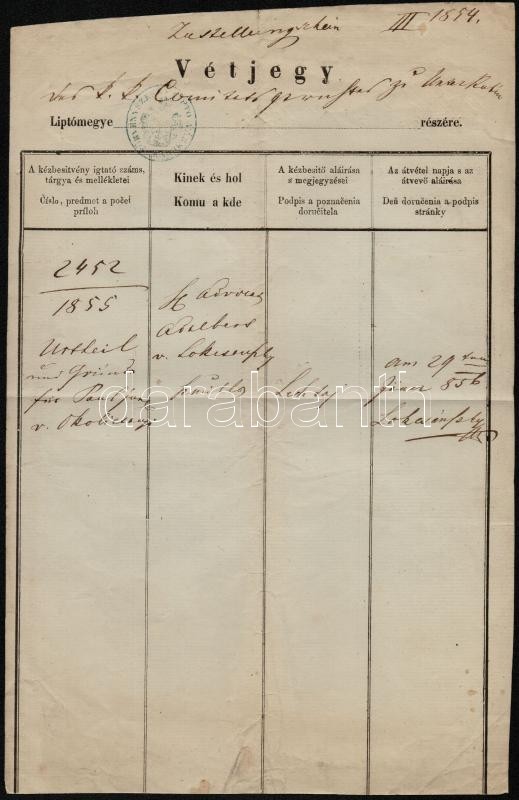 Zustellungschein III 1854.
Vétjegy
des k. k. Comitatsgerichtes zu
Liptómegye részére.
A kézbesitvény igtató száms,
tárgya és mellékletei
Číslo, predmet a počet
príloh
Kinek és hol
Komu a kde
A kézbesitő aláirása
s megjegyzései
Podpis a poznačenia
doručitela
Az átvétel napja s az
átvevő aláirása
Deň doručenia a podpis
stránky
2452
1855
Urtheil
und Gründe
für
v. Okolicsny
H Advocat
Adalbert
v.
am 29
Jäner 856
darabanth